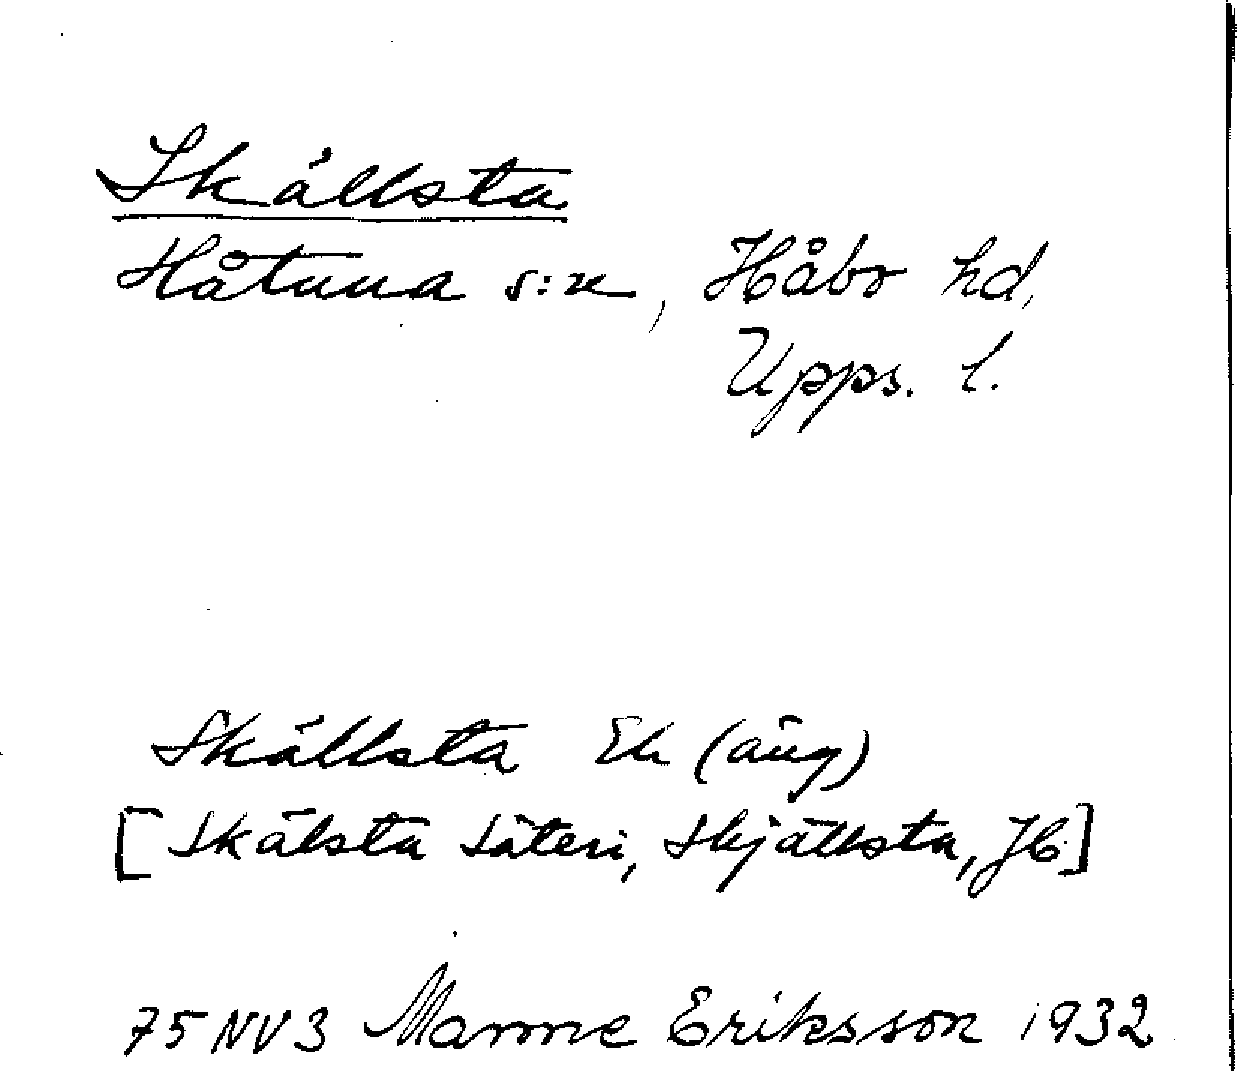 Skällsta
Håtuna s:n, Håbo hd,
Upps. l.
Skällsta Ek (äng)
[Skälsta Säteri, Skjällsta, Jb]
75 NV 3 Manne Eriksson 1932